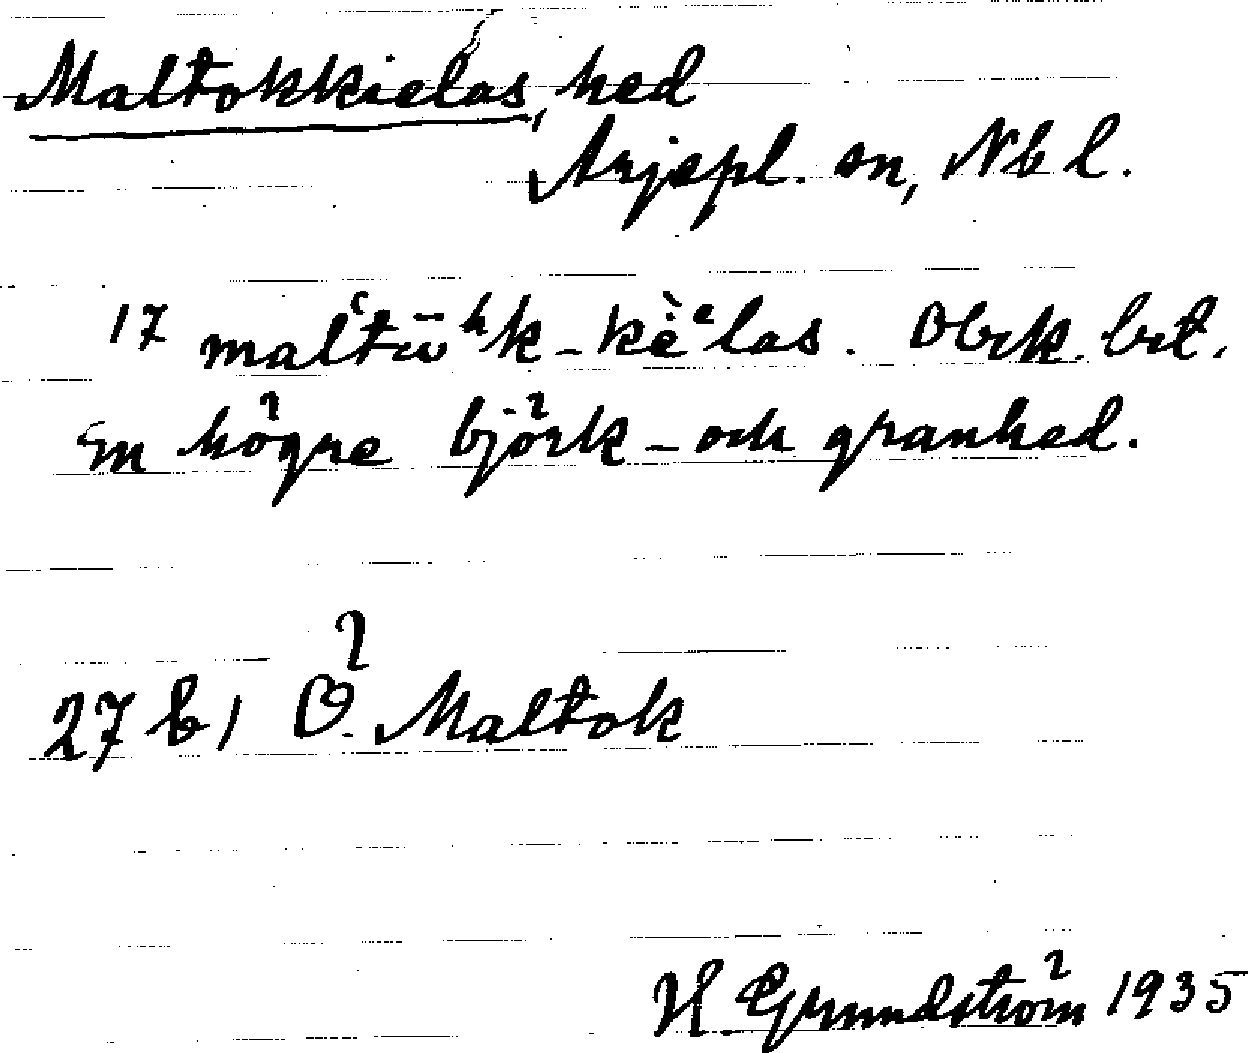 Maltokkielas, hed
Arjepl. sn, Nb l.
17 maĺtū ʰk-kèᵉlas. Obek. bet.
En högre björk- och granhed.
27 b) Ö. Maltok
H. Grundström 1935